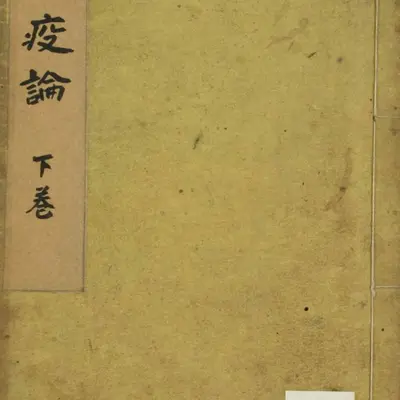 疫論
下巻